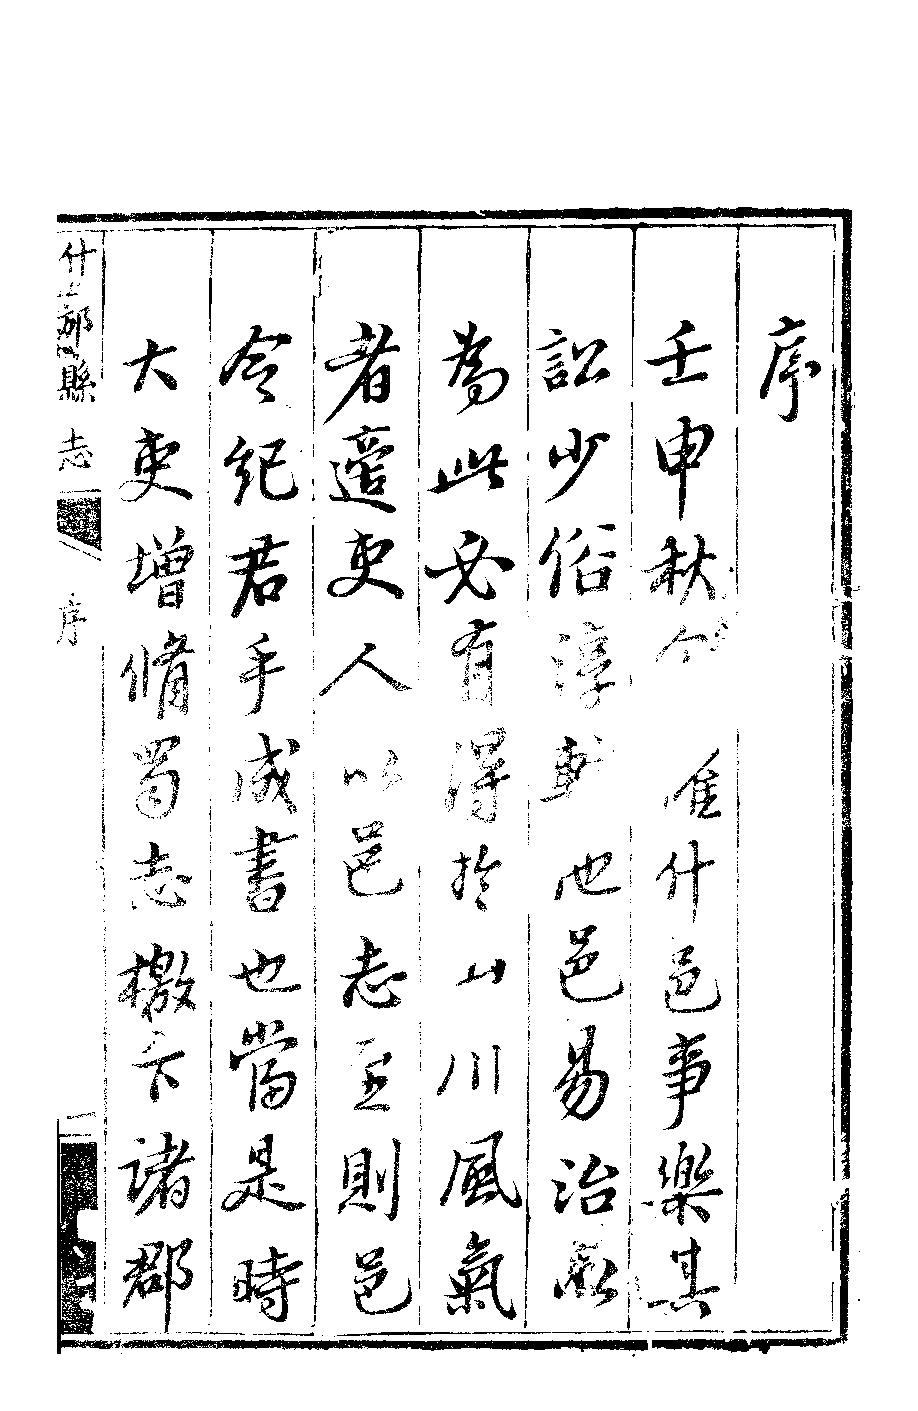 序
壬申秋 唯什邑事樂其
訟少俗淳 他邑易治
為此必有得於山川風氣
者適吏人以邑志至則邑
令紀君手成書也當是時
大吏增脩蜀志檄下諸郡
什邡縣志
序
一